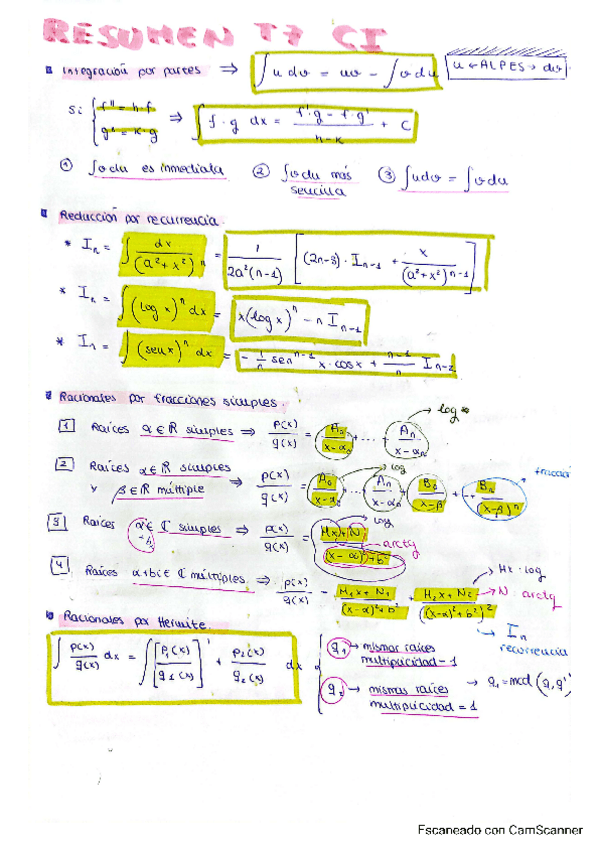 RESUMEN T7 CI
Integración por partes ⇒ ∫u dv = uv − ∫v du
u ← ALPES → dv
Si { f'' = h·f
g'' = k·g ⇒ ∫f·g dx = (f'·g − f·g')/(h−k) + C
① ∫v du es inmediata ② ∫v du más sencilla ③ ∫u dv = ∫v du
Reducción por recurrencia.
* Iₙ = ∫ dx/(a²+x²)ⁿ = 1/(2a²(n-1)) [(2n-3)·Iₙ₋₁ + x/(a²+x²)ⁿ⁻¹]
* Iₙ = ∫(log x)ⁿ dx = x(log x)ⁿ − n Iₙ₋₁
* Iₙ = ∫(sen x)ⁿ dx = −1/n senⁿ⁻¹ x·cos x + (n-1)/n Iₙ₋₂
Racionales por fracciones simples.
→ log
1 Raíces α∈ℝ simples ⇒ p(x)/q(x) = A₀/(x-α₀) + ... + Aₙ/(x-αₙ)
log
2 Raíces α∈ℝ simples
y β∈ℝ múltiple ⇒ p(x)/q(x) = A₀/(x-α₀) ... Aₙ/(x-αₙ) + B₁/(x-β) + ... + Bₙ/(x-β)ⁿ
log
3 Raíces α+b ∈ ℂ simples ⇒ p(x)/q(x) = (Mx+N)/((x-α)²+b²)
arctg
→ Mx·log
4 Raíces α+bi ∈ ℂ múltiples ⇒ p(x)/q(x) = (M₁x+N₁)/((x-α)²+b²) + (M₂x+N₂)/((x-α)²+b²)² → N·arctg
→ Iₙ
recurrencia
Racionales por Hermite.
∫ p(x)/q(x) dx = ∫ [p₁(x)/q₁(x)]' + p₂(x)/q₂(x) dx
q₁ → mismas raíces
multiplicidad − 1
q₂ → mismas raíces
multiplicidad = 1
→ q₁ = mcd (q, q')
Escaneado con CamScanner